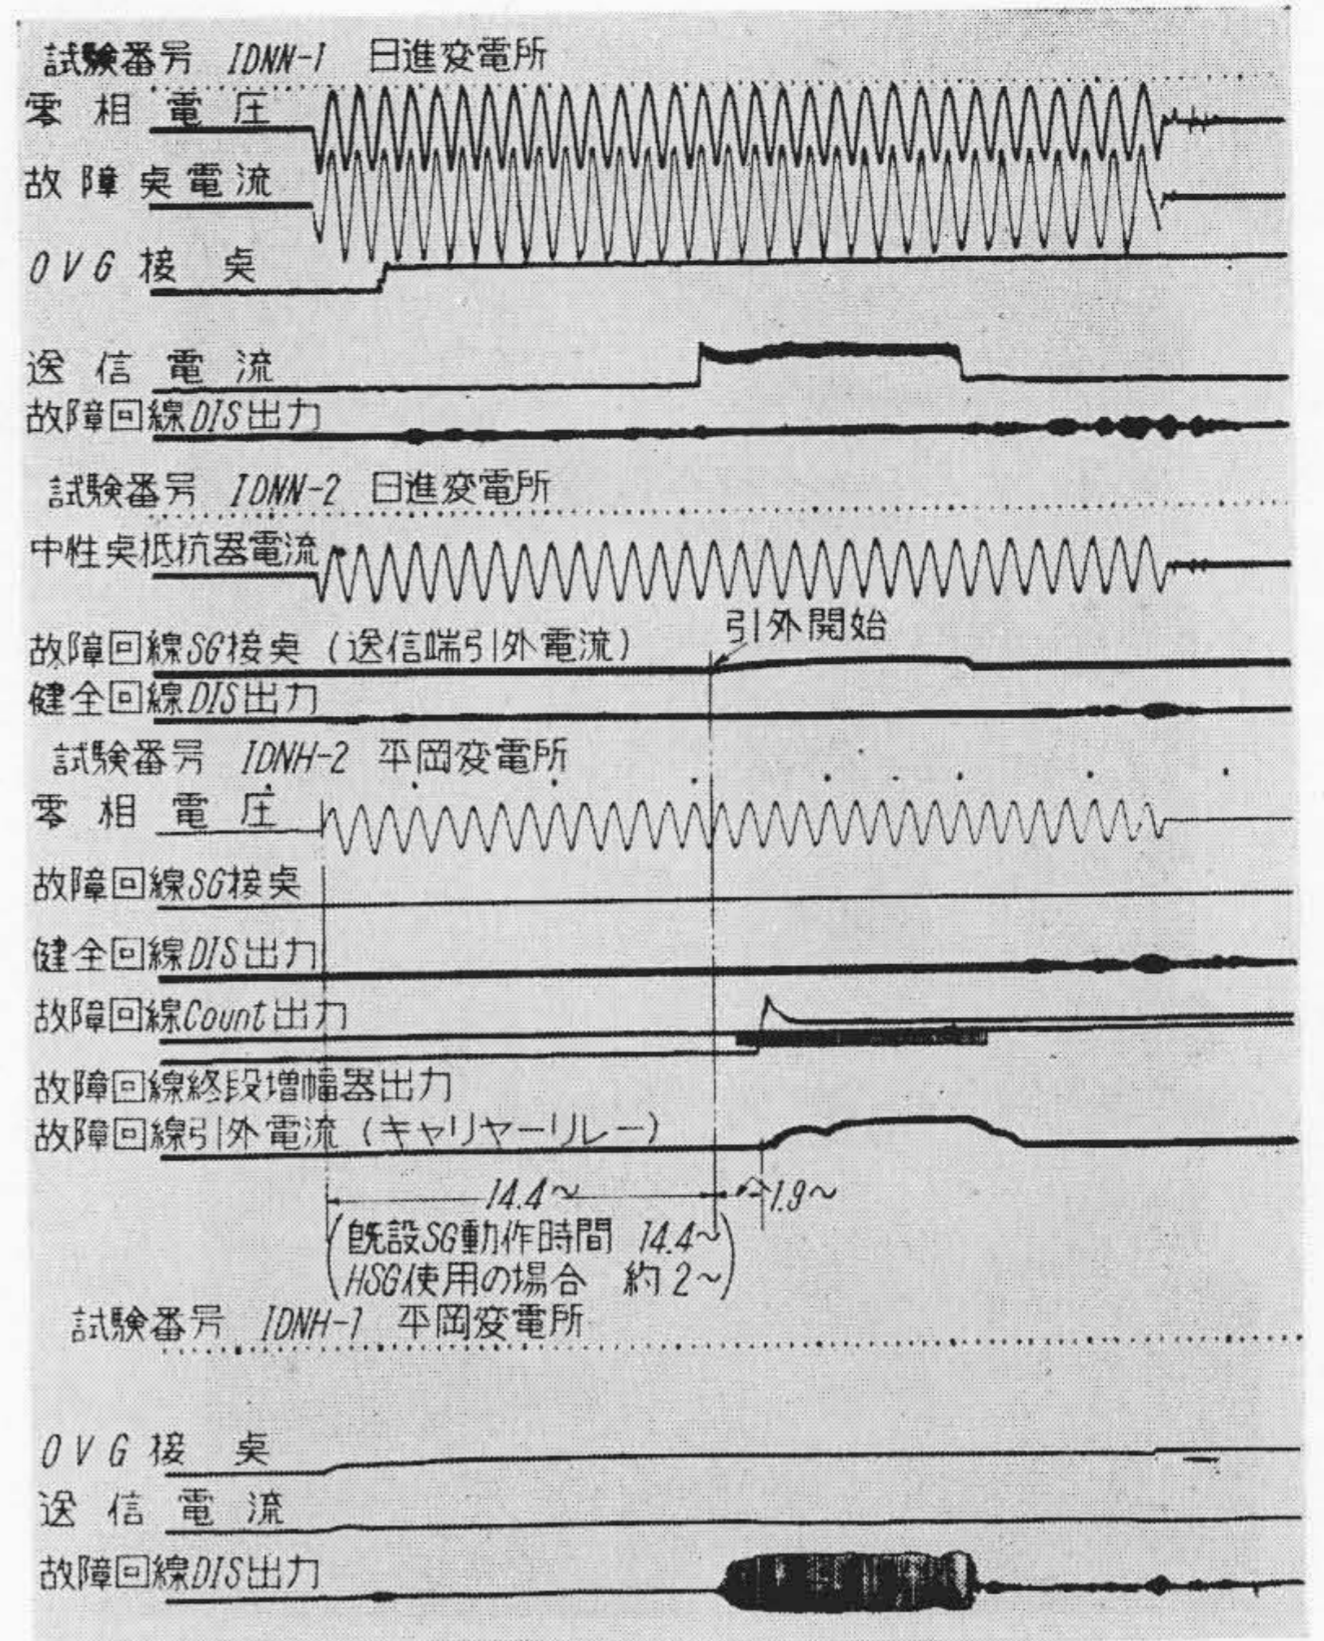 試験番号 IDNN-1 日進変電所
零相電圧
故障奌電流
OVG接奌
送信電流
故障回線DIS出力
試験番号 IDNN-2 日進変電所
中性奌抵抗器電流
引外開始
故障回線SG接奌(送信端引外電流)
健全回線DIS出力
試験番号 IDNH-2 平岡変電所
零相電圧
故障回線SG接奌
健全回線DIS出力
故障回線Count出力
故障回線終段増幅器出力
故障回線引外電流(キャリヤーリレー)
14.4~ 1.9~
(既設SG動作時間 14.4~
HSG使用の場合 約2~)
試験番号 IDNH-1 平岡変電所
OVG接奌
送信電流
故障回線DIS出力